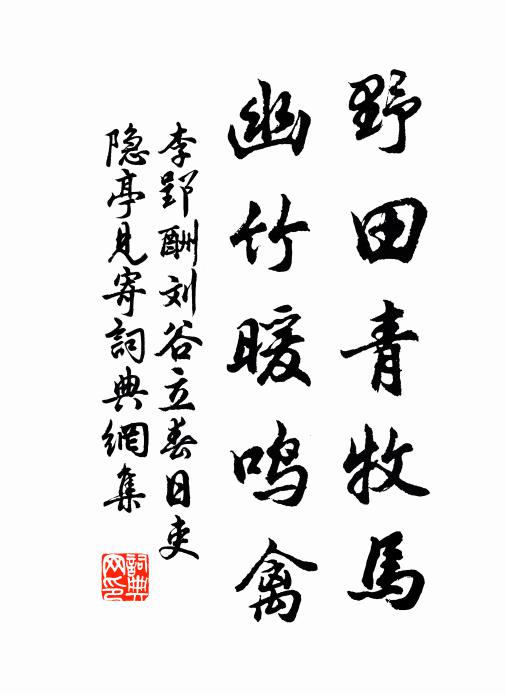 野田青牧馬
幽竹暖鸣禽
李郢酬刘谷立春日吏
隐亭見寄詞典網集
詞典
网印